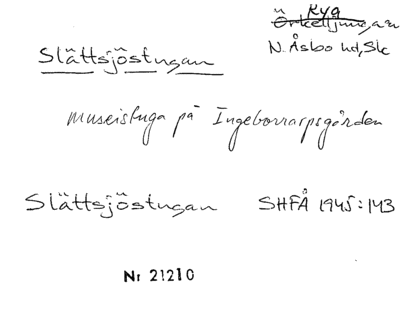 Ryg
Örkelljunga n
Slättsjöstugan
N. Åsbo hd, Sk
museistuga på Ingeborrarpsgården
Slättsjöstugan SHFÅ 1945:143
Nr 21210